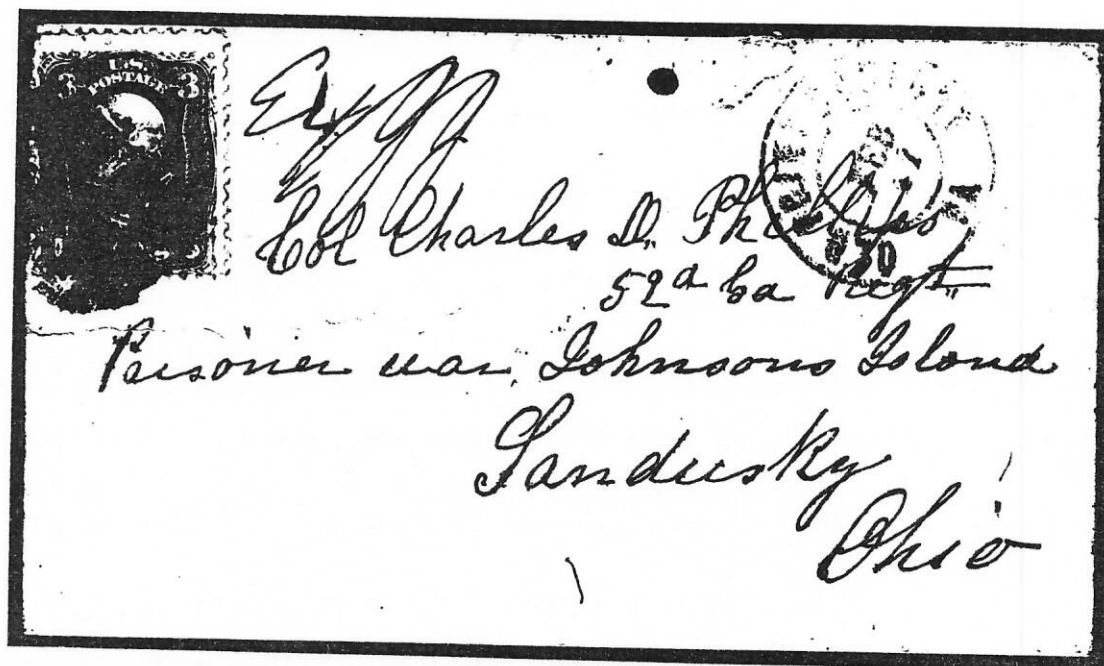 3 U.S. 3
POSTAGE
Ex
Col Charles D. Phillips
52d Ga Regt
Prisoner war Johnsons Island
Sandusky
Ohio